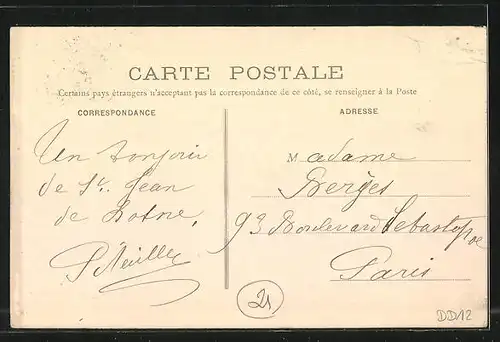 CARTE POSTALE
Certains pays étrangers n'acceptant pas la correspondance de ce côté, se renseigner à la Poste
CORRESPONDANCE
Un bonjour
de St. Jean
de Losne,
ADRESSE
Madame
Bergès
93 Boulevard Sebastopol
Paris
21
DD/12